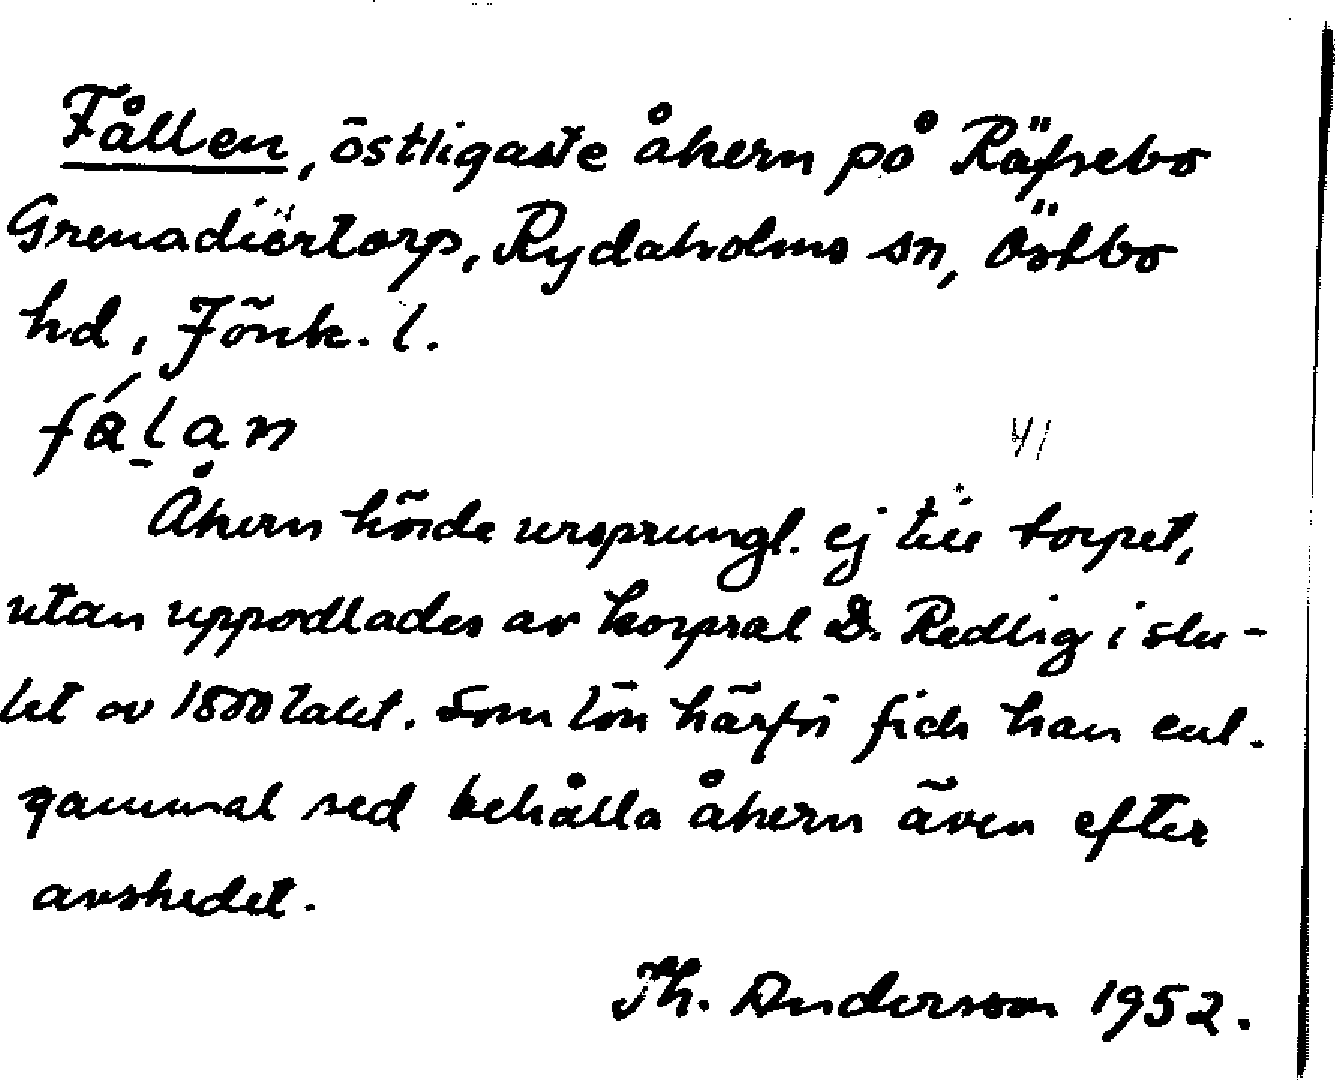 Fållen, östligaste åkern på Räfsebo
Grenadiörtorp, Rydaholms sn, Östbo
hd, Jönk. l.
fálan
Åkern hörde ursprungl. ej till torpet,
utan uppodlades av korpral D. Redlig i slu-
tet av 1800talet. Som lön härför fick han enl.
gammal sed behålla åkern även efter
avskedet.
Th. Anderson 1952.